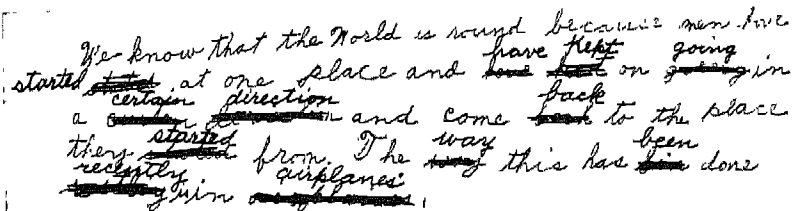 We know that the World is round because men have
started at one place and have kept on going in
a certain direction and come back to the place
they started from. The way this has been done
recently is in airplanes.